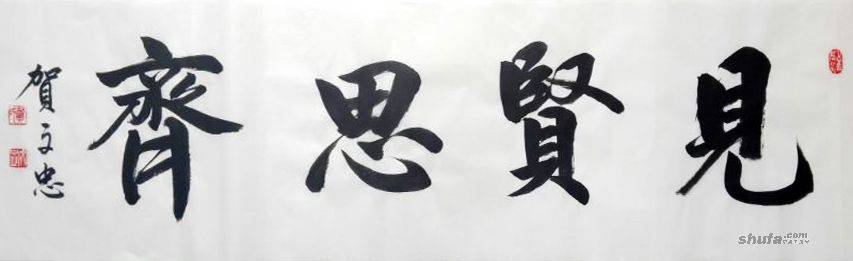 見賢思齊
賀文忠
shufa.com